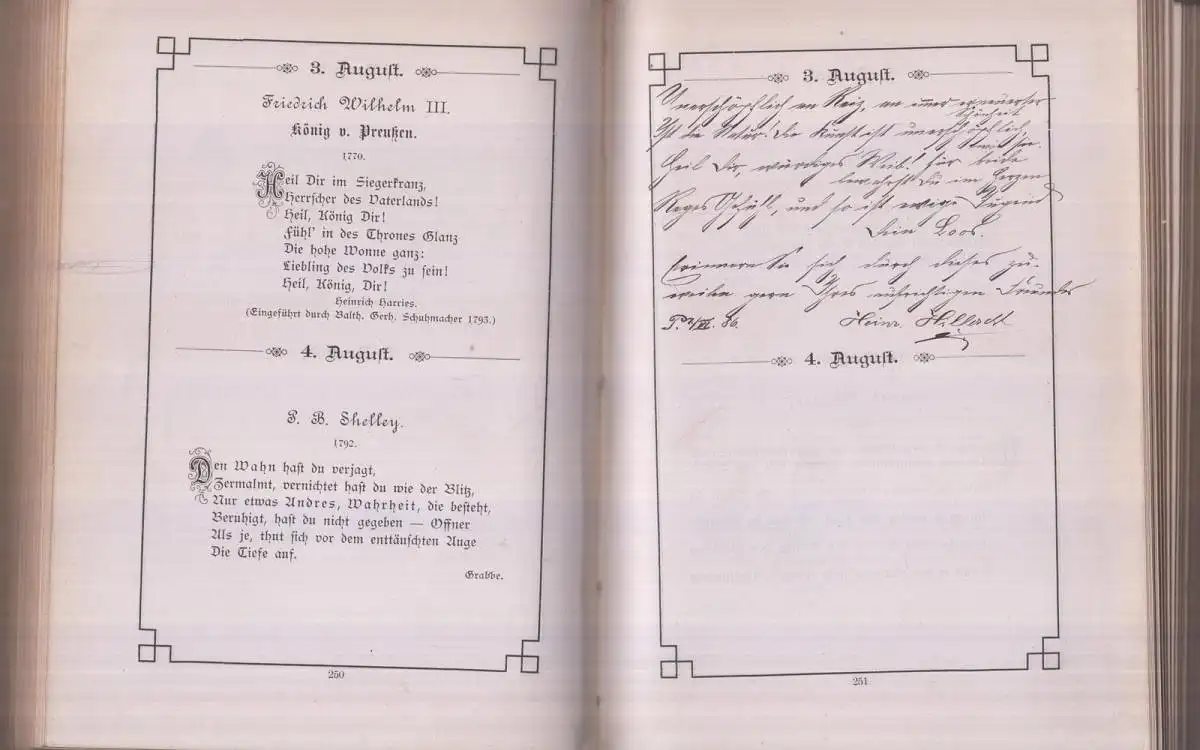 3. August.
Friedrich Wilhelm III.
König v. Preußen.
1770.
Heil Dir im Siegerkranz,
Herrscher des Vaterlands!
Heil, König Dir!
Fühl' in des Thrones Glanz
Die hohe Wonne ganz:
Liebling des Volks zu sein!
Heil, König, Dir!
Heinrich Harries.
(Eingeführt durch Balth. Gerh. Schuhmacher 1793.)
4. August.
P. B. Shelley.
1792.
Den Wahn hast du verjagt,
Zermalmt, vernichtet hast du wie der Blitz,
Nur etwas Andres, Wahrheit, die besteht,
Beruhigt, hast du nicht gegeben — Offner
Als je, thut sich vor dem enttäuschten Auge
Die Tiefe auf.
Grabbe.
250
3. August.
Unerschöpflich an Reiz, an immer erneuerter
Schönheit
Ist die Natur! Die Kunst ist unerschöpflich,
wie sie.
Heil Dir, würdiges Weib! für beide
bewahrst Du im Herzen
Reges Gefühl, und so ist ewige Jugend
Dein Loos.
Erinnern Sie sich durch dieses zu-
weilen gern Ihres aufrichtigen Freundes
86. Heinr.
4. August.
251